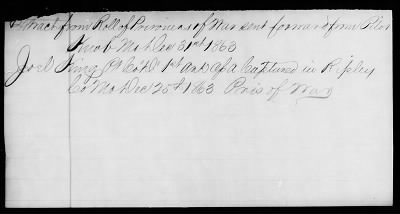 Extract from Roll of Prisoners of War sent forward from Pilot
Knob Mo Dec 31st 1863
Joel King Pt Co D 1st Captured in Ripley
Co Mo Dec 25th 1863 Pris of War